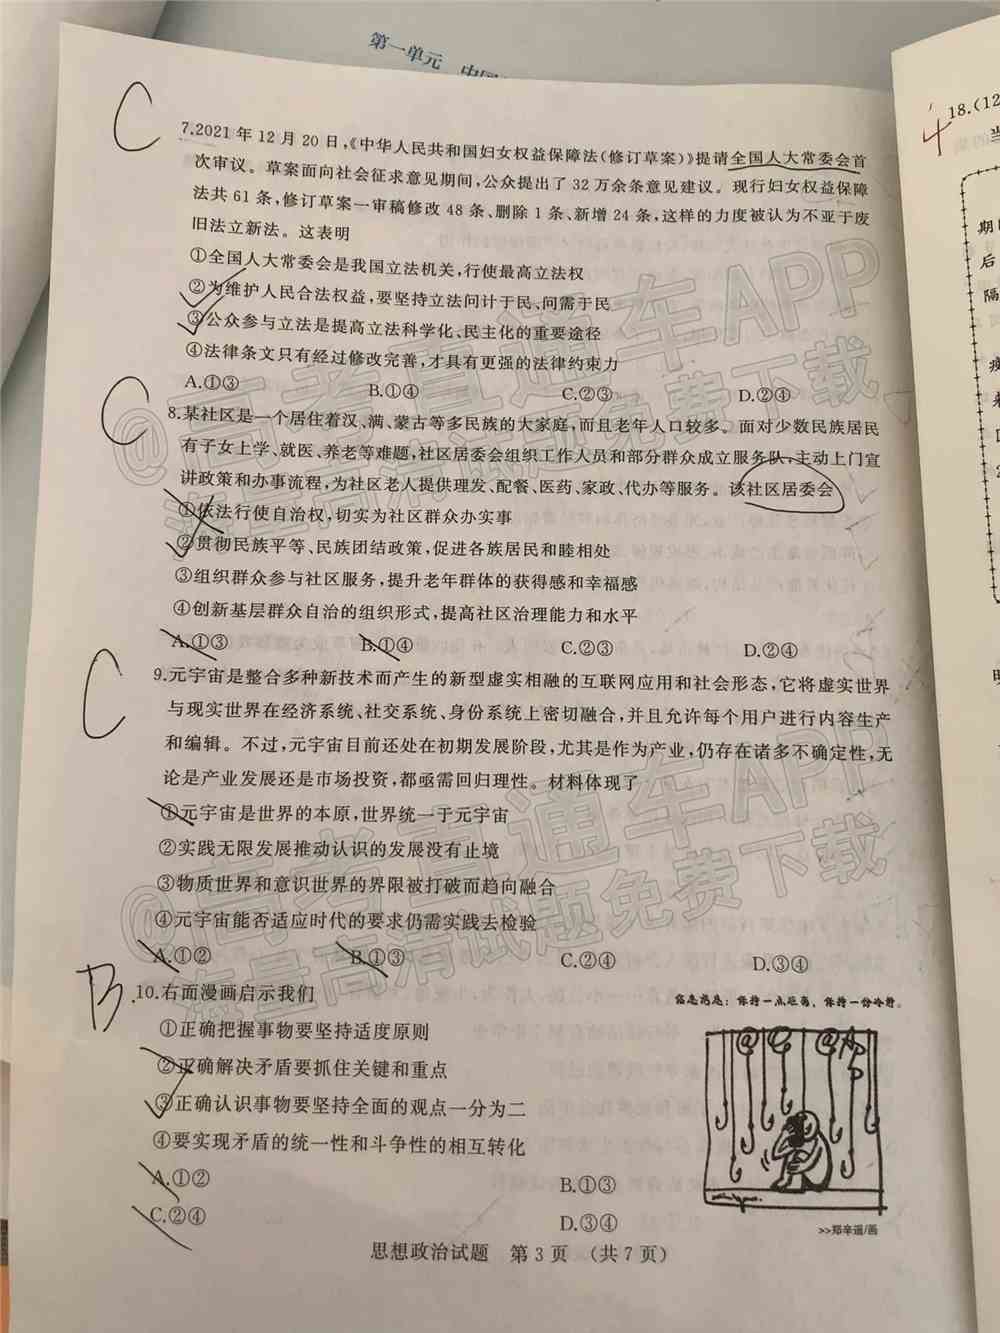 第一单元 中国
C
7.2021年12月20日,《中华人民共和国妇女权益保障法(修订草案)》提请全国人大常委会首
次审议。草案面向社会征求意见期间,公众提出了32万余条意见建议。现行妇女权益保障
法共61条,修订草案一审稿修改48条、删除1条、新增24条,这样的力度被认为不亚于废
旧法立新法。这表明
①全国人大常委会是我国立法机关,行使最高立法权
②为维护人民合法权益,要坚持立法问计于民、问需于民
③公众参与立法是提高立法科学化、民主化的重要途径
④法律条文只有经过修改完善,才具有更强的法律约束力
A.①③ B.①④ C.②③ D.②④
C
8.某社区是一个居住着汉、满、蒙古等多民族的大家庭,而且老年人口较多。面对少数民族居民
有子女上学、就医、养老等难题,社区居委会组织工作人员和部分群众成立服务队,主动上门宣
讲政策和办事流程,为社区老人提供理发、配餐、医药、家政、代办等服务。该社区居委会
①依法行使自治权,切实为社区群众办实事
②贯彻民族平等、民族团结政策,促进各族居民和睦相处
③组织群众参与社区服务,提升老年群体的获得感和幸福感
④创新基层群众自治的组织形式,提高社区治理能力和水平
A.①③ B.①④ C.②③ D.②④
C
9.元宇宙是整合多种新技术而产生的新型虚实相融的互联网应用和社会形态,它将虚实世界
与现实世界在经济系统、社交系统、身份系统上密切融合,并且允许每个用户进行内容生产
和编辑。不过,元宇宙目前还处在初期发展阶段,尤其是作为产业,仍存在诸多不确定性,无
论是产业发展还是市场投资,都亟需回归理性。材料体现了
①元宇宙是世界的本原,世界统一于元宇宙
②实践无限发展推动认识的发展没有止境
③物质世界和意识世界的界限被打破而趋向融合
④元宇宙能否适应时代的要求仍需实践去检验
A.①② B.①③ C.②④ D.③④
B
10.右面漫画启示我们
①正确把握事物要坚持适度原则
②正确解决矛盾要抓住关键和重点
③正确认识事物要坚持全面的观点一分为二
④要实现矛盾的统一性和斗争性的相互转化
A.①② B.①③
C.②④ D.③④
保持一点距离、保持一份冷静。
@ @ APP
>>郑辛遥/画
思想政治试题 第3页 (共7页)
@高考直通车APP
海量高清试题免费下载
@高考直通车APP
海量高清试题免费下载
4
18.(12
当
期
后
隔
疫